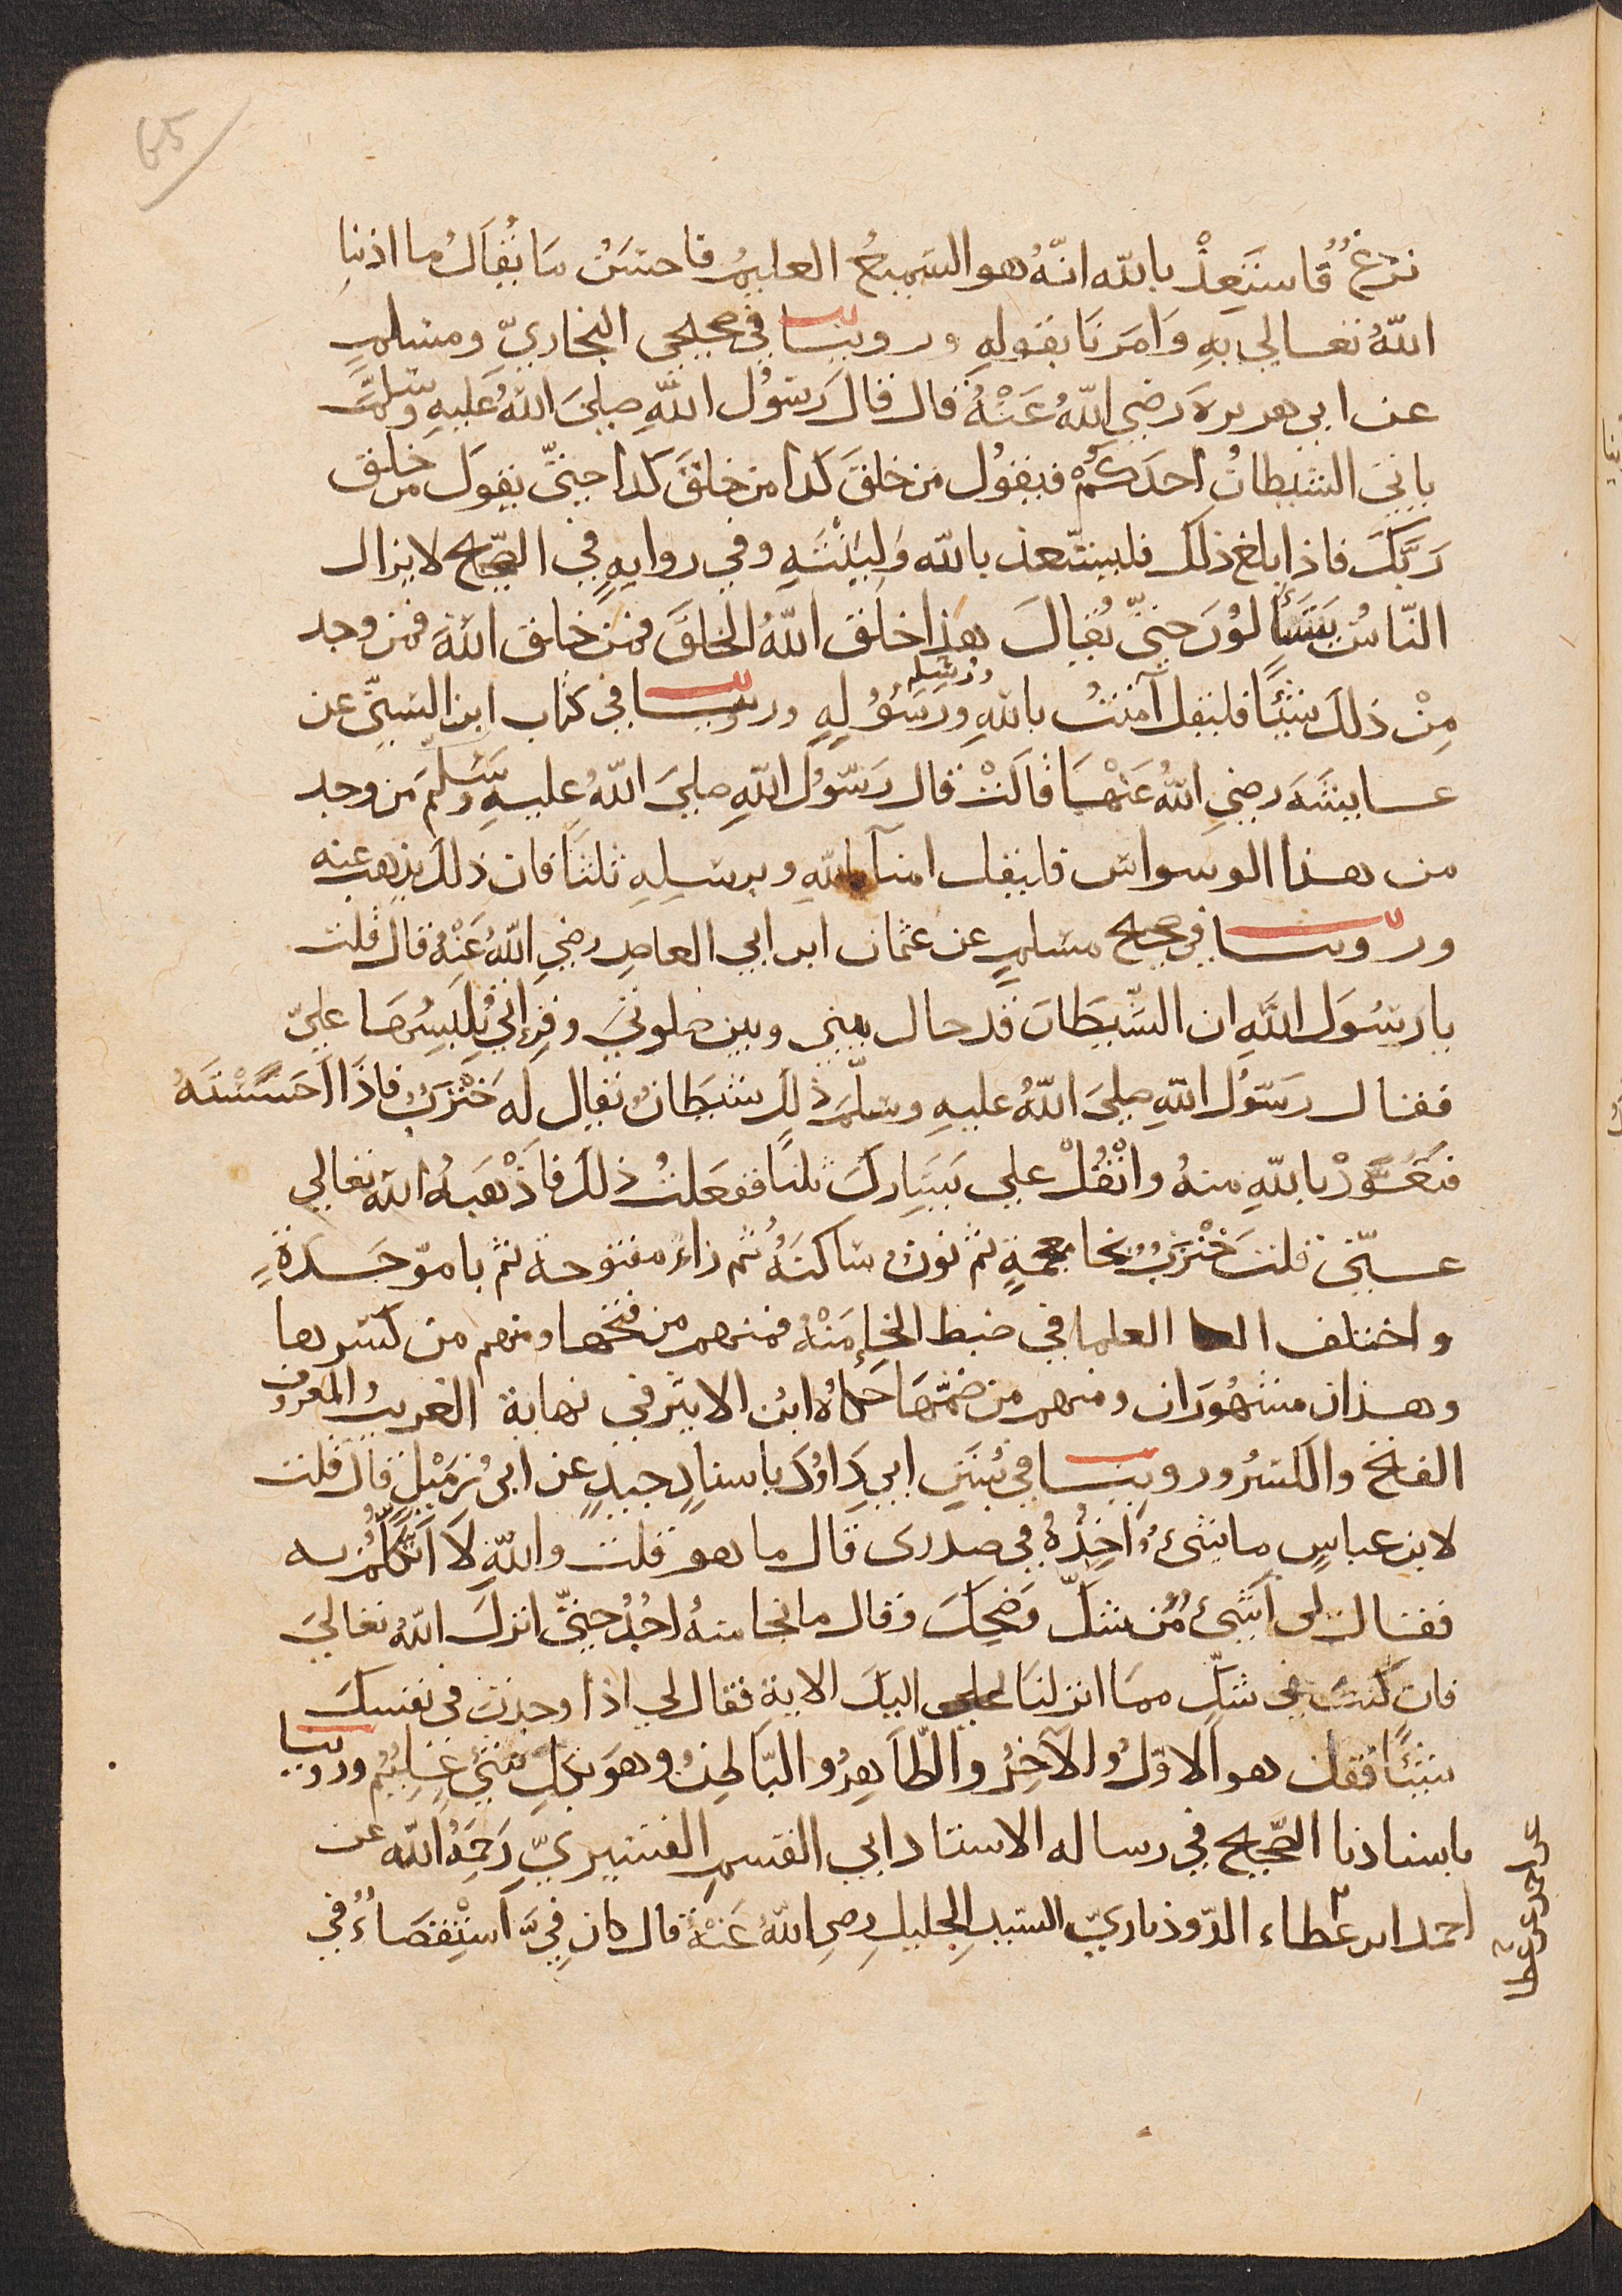 65
نزغ فاستعذ بالله انّه هو السميع العليم فاحسن ما يقال ما ادبنا
الله تعالي به وامرنا بقوله وروينا في صحيحي البخاريّ ومسلم
عن ابي هريرة رضي الله عنه قال قال رسول الله صلي الله عليه وسلم
ياتي الشيطان احدكم فيقول من خلق كدا من خلق كدا حتّي يقول من خلق
ربّك فاذا بلغ ذلك فليستعذ بالله ولينته وفي روايه في الصحيح لا يزال
النّاس يتسألون حتّي يقال هذا خلق الله الخلق فمن خلق الله فمن وجد
من ذلك شيئًا فليقل آمنت بالله ورسوله وروينا في كتاب ابن السنّي عن
ورسله
عايشة رضي الله عنها قالت قال رسول الله صلي الله عليه وسلم من وجد
من هذا الوسواس فليقل امنا بالله وبرسله ثلثا فان ذلك يذهب عنه
وروينا في صحيح مسلم عن عثمان ابن ابي العاص رضي الله عنه قال قلت
يا رسول الله ان الشيطان قد حال بيني وبين صلوتي وقراتي يلبسها عليّ
فقال رسول الله صلي الله عليه وسلّم ذلك شيطان يقال له خنزب فاذا احسسته
فتعوّذ بالله منه واتفل علي يسارك ثلثا ففعلت ذلك فاذهبه الله تعالي
عنّي قلت خنزب بخا معجمة ثم نون ساكنة ثم زاء مفتوحة ثم با موّحدة
واختلف العلما في ضبط الخاء منه فمنهم من فتحها ومنهم من كسرها
وهذان مشهوران ومنهم من ضمّها حكاه ابن الاثير في نهاية الغريب والمعروف
الفتح والكسر وروينا في سنن ابي داود باسناد جيد عن ابي زميل قال قلت
لابن عباس ما شيء اجده في صدري قال ما هو قلت والله لا اتكلّم به
فقال لي اشيء من شكّ وضحك وقال ما نجا منه احد حتّي انزل الله تعالي
فان كنت في شكّ مما انزلنا اليك الاية فقال لي اذا وجدت في نفسك
شيئًا فقل هو الاوّل والآخر والظّاهر والبّاطن وهو بكل شيء عليم وروينا
باسنادنا الصّحيح في رساله الاستاد ابي القسم القشيريّ رحمه الله عن
احمد ابن عطاء الرّوذباريّ السيد الجليل رضي الله عنه قال كان فيّ استقصاءٌ في